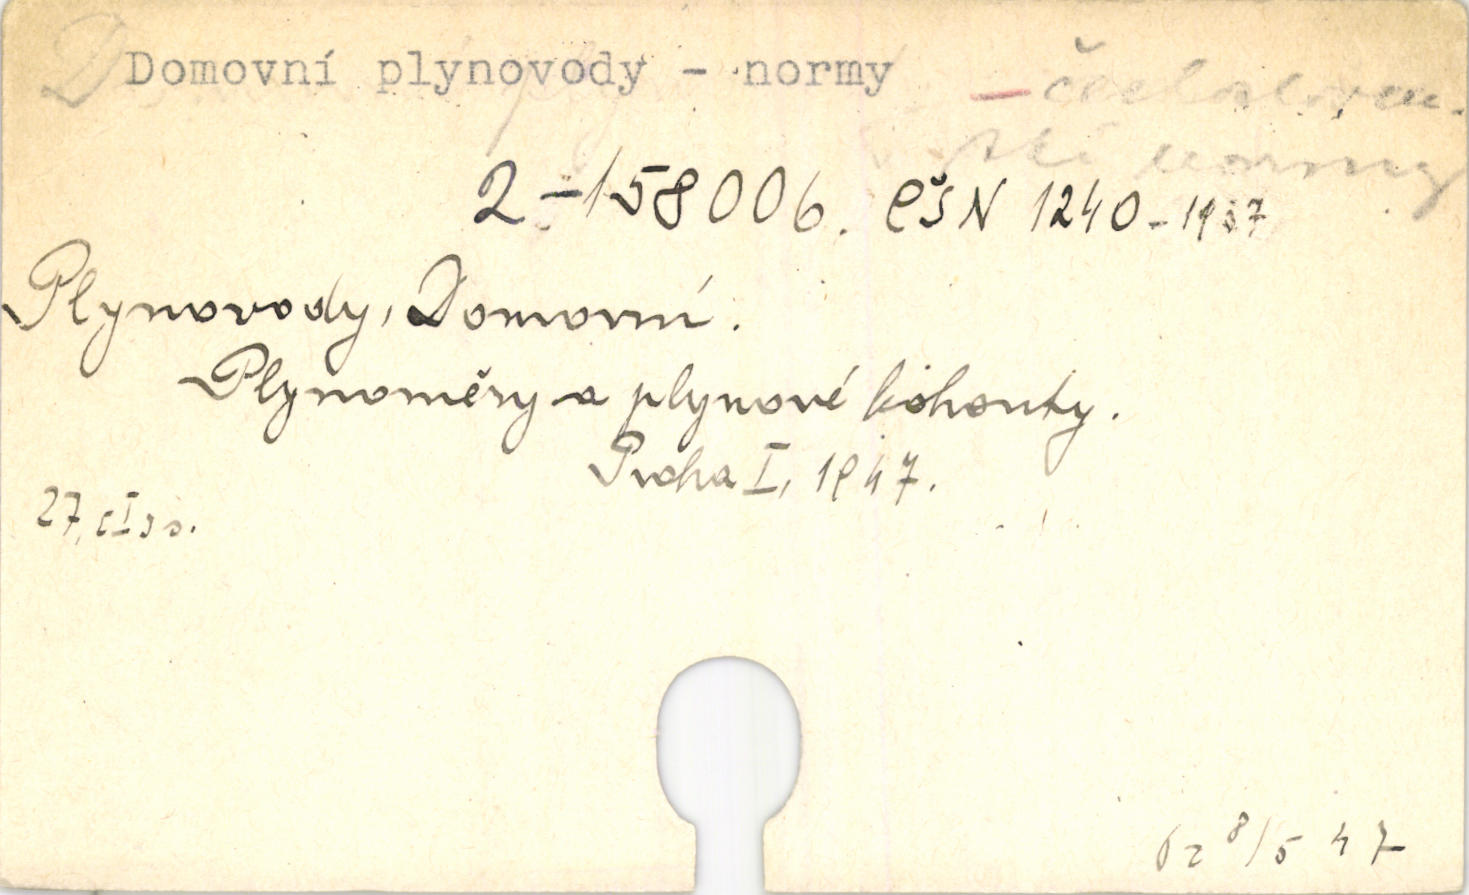 Domovní plynovody - normy - českosloven-
ské normy
2-158006. ČSN 1240-1937
Plynovody, Domovní.
Plynoměry a plynové kohouty.
Praha I, 1947.
27,
8/5 47